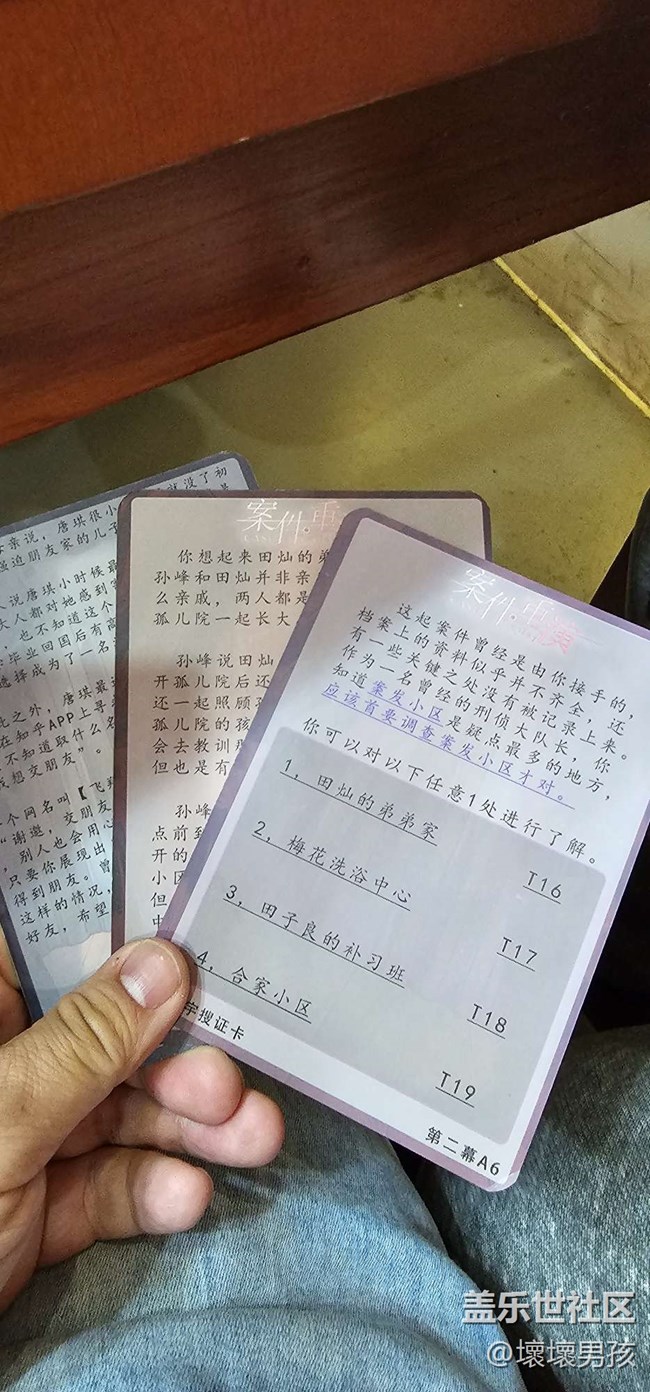 亲说，唐琪很小
强迫朋友家的儿子
说唐琪小时候最
大人都对她感到
，也不知道这个
毕业回国后有
选择成为了一名
此之外，唐琪最
在知乎APP上寻
不知道取什么名
想交朋友”。
个网名叫【飞翔
“谢邀，交朋友
，别人也会用心
只要你展现出
得到朋友。曾
这样的情况，
好友，希望
案件。重
你想起来田灿的弟
孙峰和田灿并非亲
么亲戚，两人都是
孤儿院一起长大
孙峰说田灿
开孤儿院后还
还一起照顾孙
孤儿院的孩
会去教训
但也是有
孙峰
点前到
开的
小区
但
中
案件。重
这起案件曾经是由你接手的，
档案上的资料似乎并不齐全，还
有一些关键之处没有被记录上来。
作为一名曾经的刑侦大队长，你
知道案发小区是疑点最多的地方，
应该首要调查案发小区才对。
你可以对以下任意1处进行了解。
1，田灿的弟弟家 T16
2，梅花洗浴中心 T17
3，田子良的补习班 T18
4，合家小区 T19
宇搜证卡
第二幕A6
盖乐世社区
@壞壞男孩